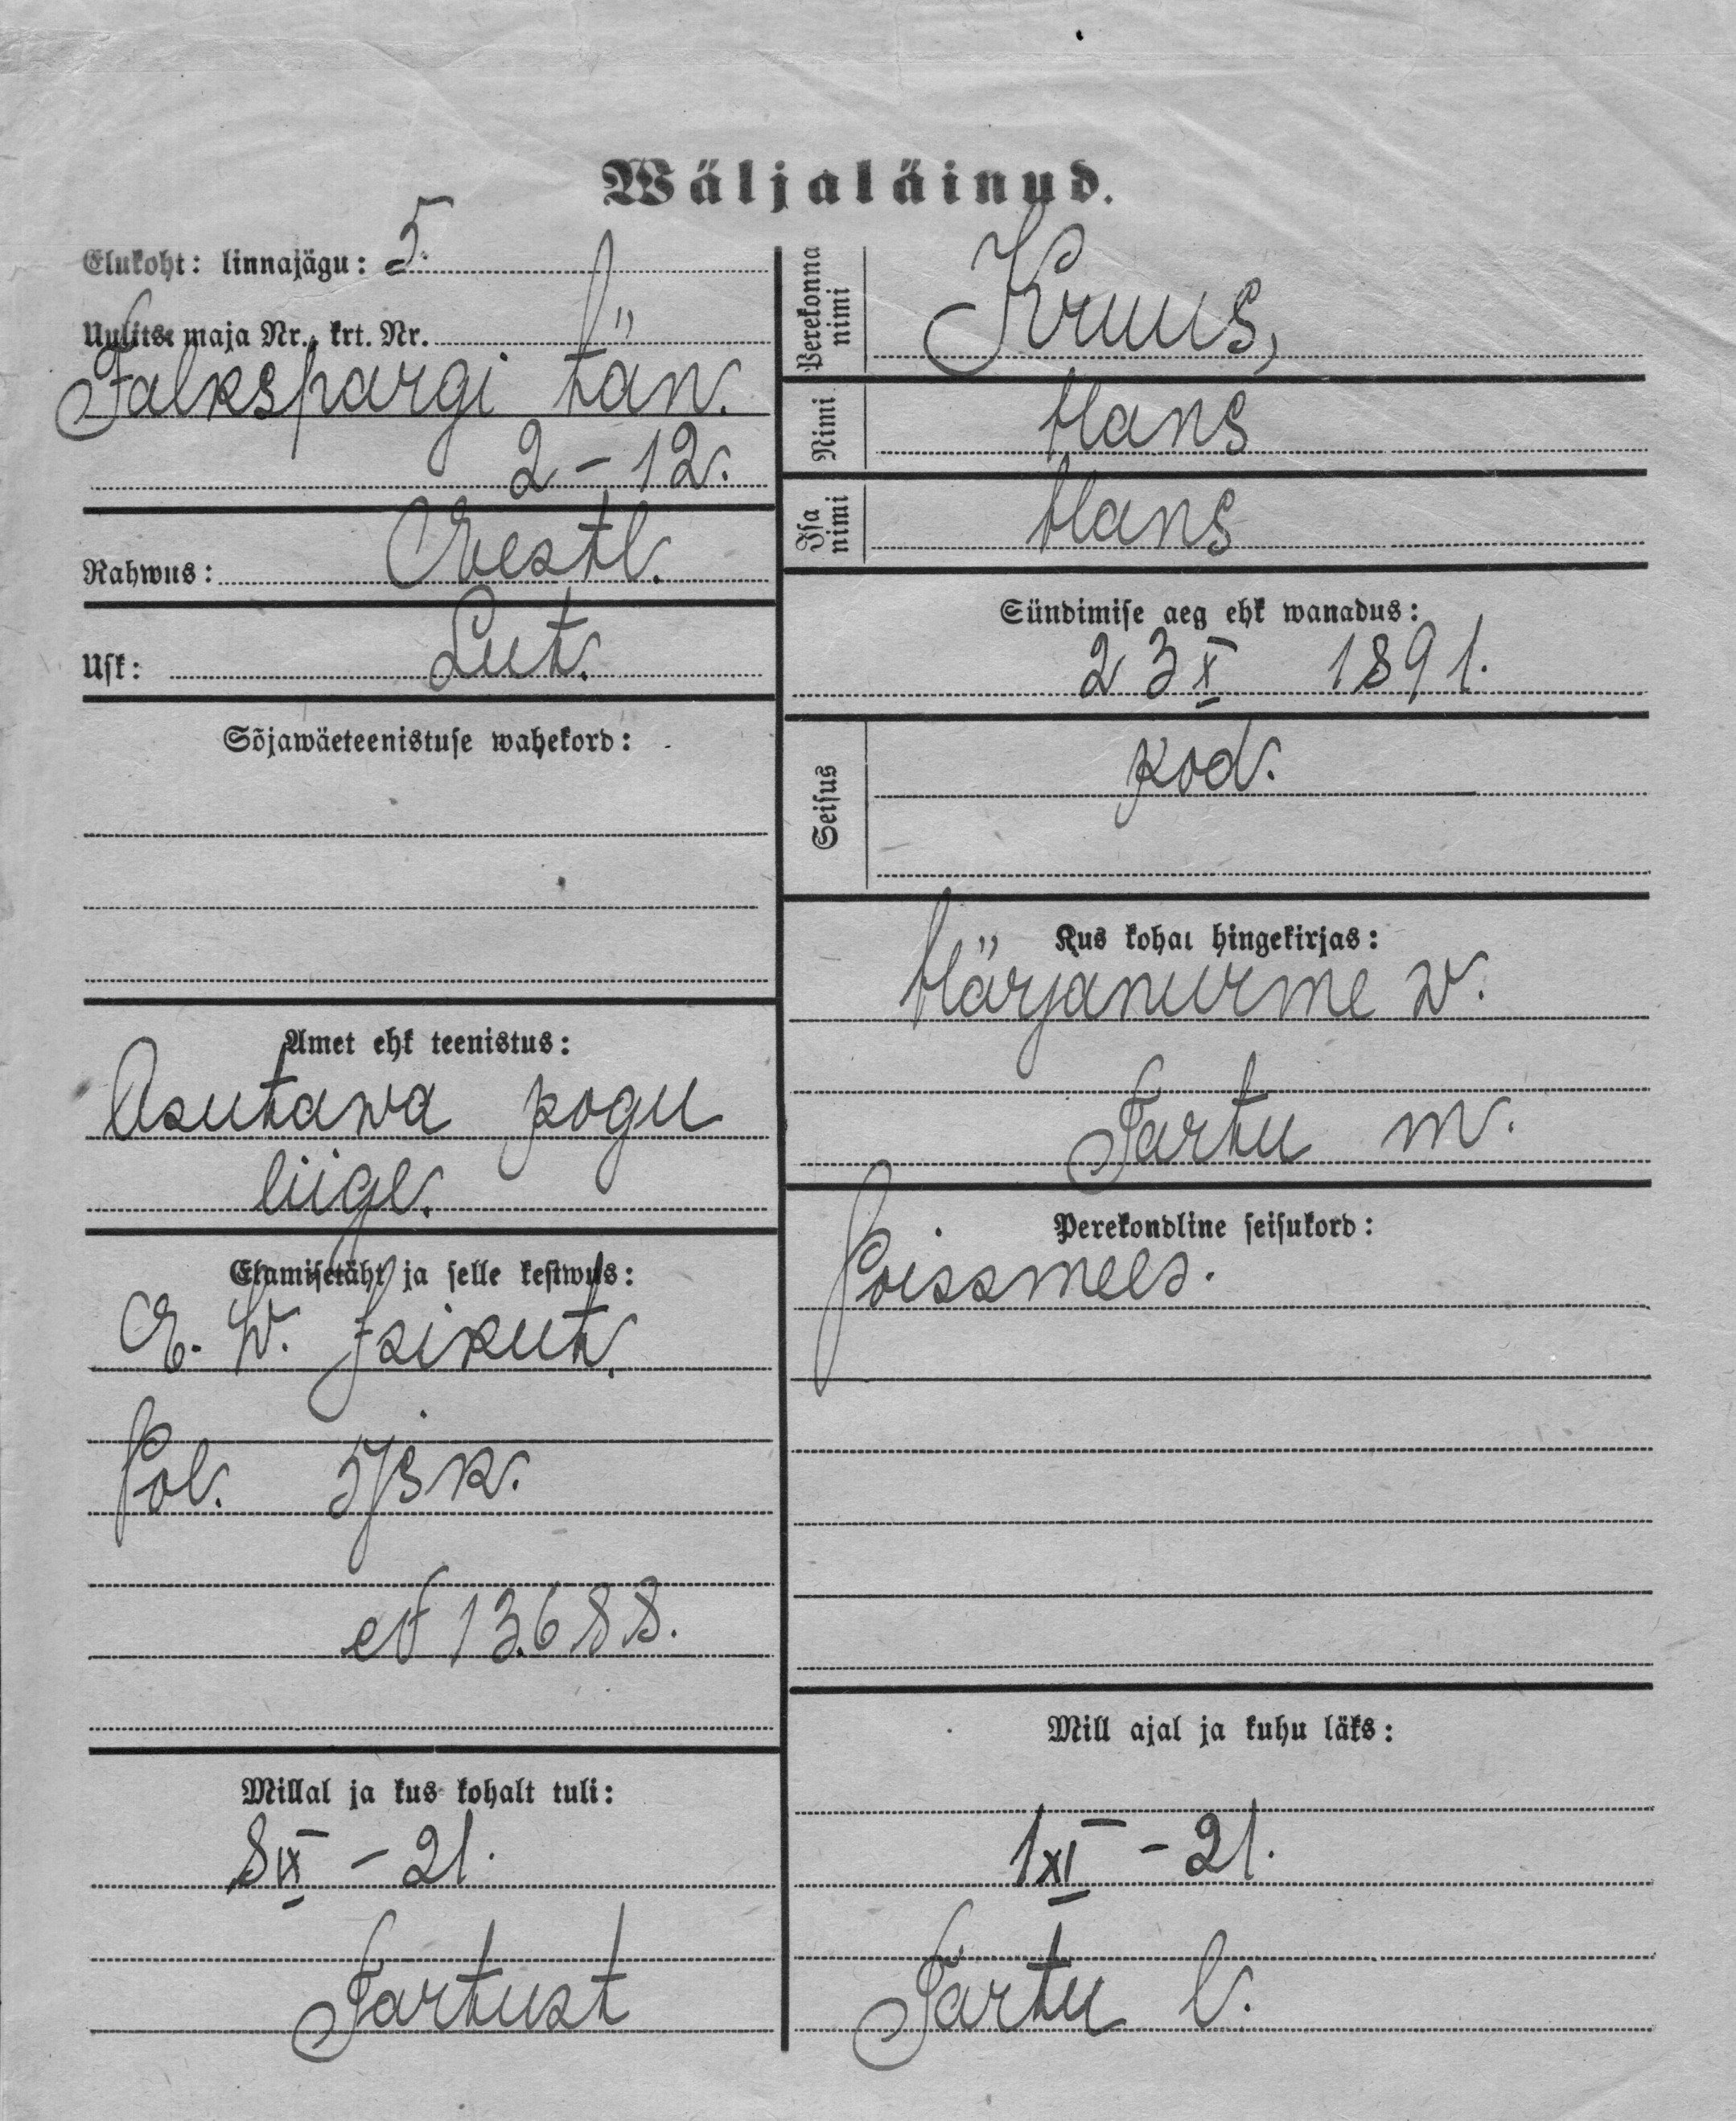 Wäljaläinud.
Elukoht: linnajägu: 5.
Uulitse maja Nr., krt. Nr.
Falkspargi tän.
2 – 12.
Rahwus: Eestl.
Usk: Lut.
Sõjawäeteenistuse wahekord:
Amet ehk teenistus:
Asutawa kogu
liige.
Elamisetäht ja selle kestwus:
E. W. Isikut.
Pol. 5 jsk.
№ 13688.
Millal ja kus kohalt tuli:
8 IX – 21.
Tartust
Perekonna nimi
Kruus,
Nimi
Hans
Isa nimi
Hans
Sündimise aeg ehk wanadus:
23 X 1891.
Seisus
kod.
Kus kohal hingekirjas:
Härjanurme w.
Tartu m.
Perekondline seisukord:
Poissmees.
Mill ajal ja kuhu läks:
1 XI – 21.
Tartu l.